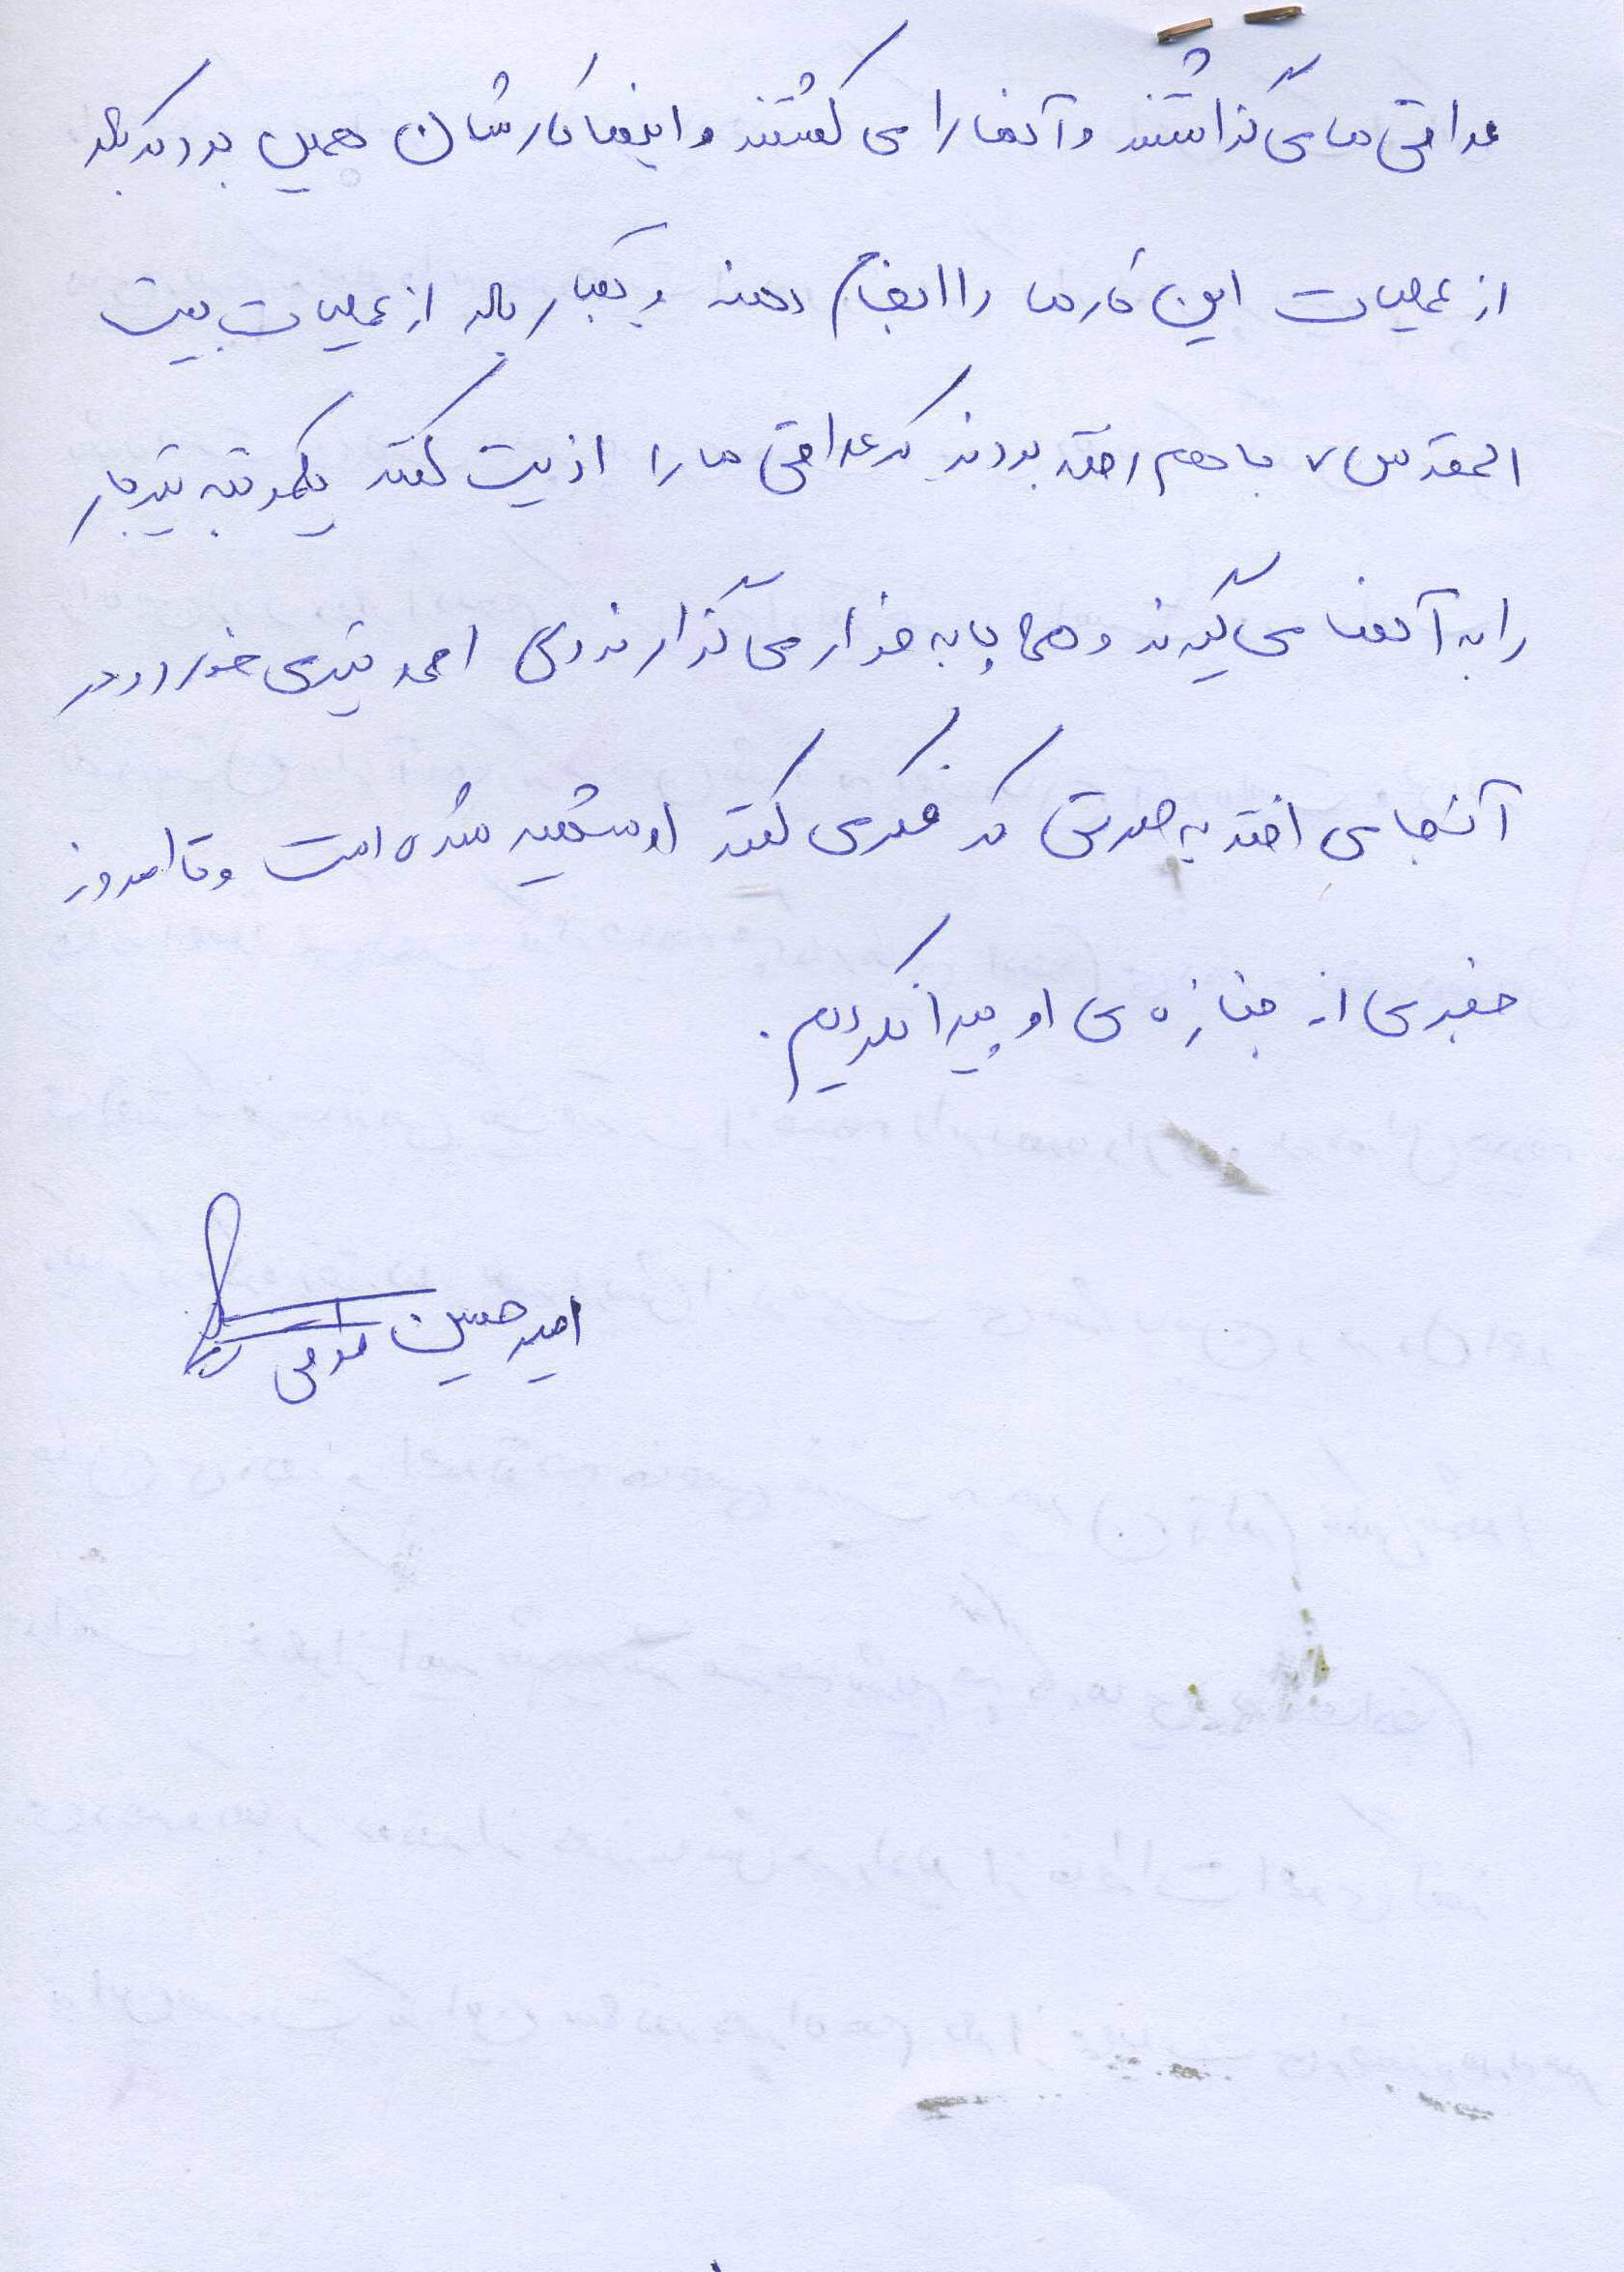 عراقی ها می گذاشتند و آنها را می کشتند و اینها کارشان همین بود که بعد
از عملیات این کارها را انجام دهند و یکبار بعد از عملیات بیت
المقدس ۷ با هم رفته بودند که عراقی ها را اذیت کنند یکمرتبه تیربار
را به آنها می گیرند و همه پا به فرار می گذارند ولی احمد تیری خورد و در
آنجا می افتد به صورتی که فکر می کنند او شهید شده است و تا امروز
خبری از جنازه ی او پیدا نکردیم.
امیرحسین